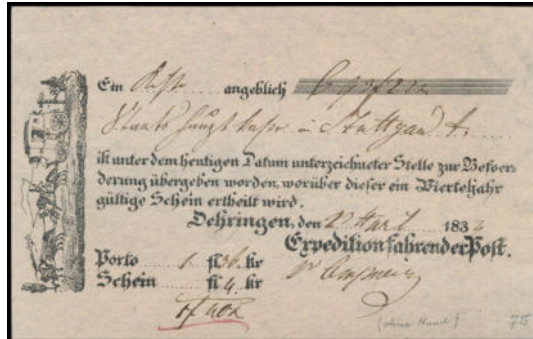 Ein Kiste angeblich
Staats Haupt Kasse in Stuttgart
ist unter dem heutigen Datum unterzeichneter Stelle zur Beför-
derung übergeben worden, worüber dieser ein Vierteljahr
gültige Schein ertheilt wird.
Oehringen, den 183
Expedition fahrender Post.
Porto 1 fl 36 kr
Schein fl 4 kr
1 f 40 x
(ohne Hand) 75